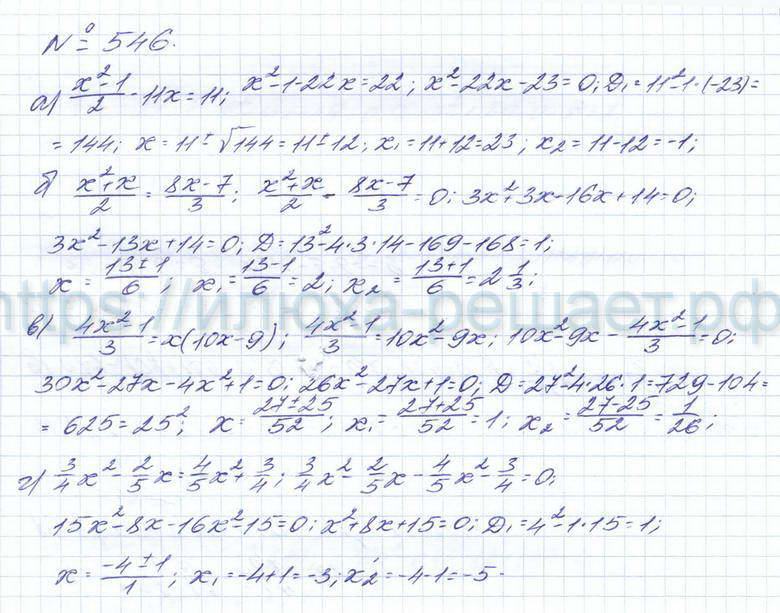 № 546.
а) (x²-1)/2 - 11x = 11; x²-1-22x=22; x²-22x-23=0; D₁=11²-1·(-23)=
=144; x=11±√144=11±12; x₁=11+12=23; x₂=11-12=-1;
б) (x²+x)/2 = (8x-7)/3; (x²+x)/2 - (8x-7)/3 = 0; 3x²+3x-16x+14=0;
3x²-13x+14=0; D=13²-4·3·14-169-168=1;
x = (13±1)/6; x₁ = (13-1)/6 = 2; x₂ = (13+1)/6 = 2 1/3;
https://илюха-решает.рф
в) (4x²-1)/3 = x(10x-9); (4x²-1)/3 = 10x²-9x; 10x²-9x - (4x²-1)/3 = 0;
30x²-27x-4x²+1=0; 26x²-27x+1=0; D=27²-4·26·1=729-104=
=625=25²; x = (27±25)/52; x₁ = (27+25)/52 = 1; x₂ = (27-25)/52 = 1/26;
г) 3/4x² - 2/5x = 4/5x² + 3/4; 3/4x² - 2/5x - 4/5x² - 3/4 = 0;
15x²-8x-16x²-15=0; x²+8x+15=0; D₁=4²-1·15=1;
x = (-4±1)/1; x₁=-4+1=-3; x₂=-4-1=-5.